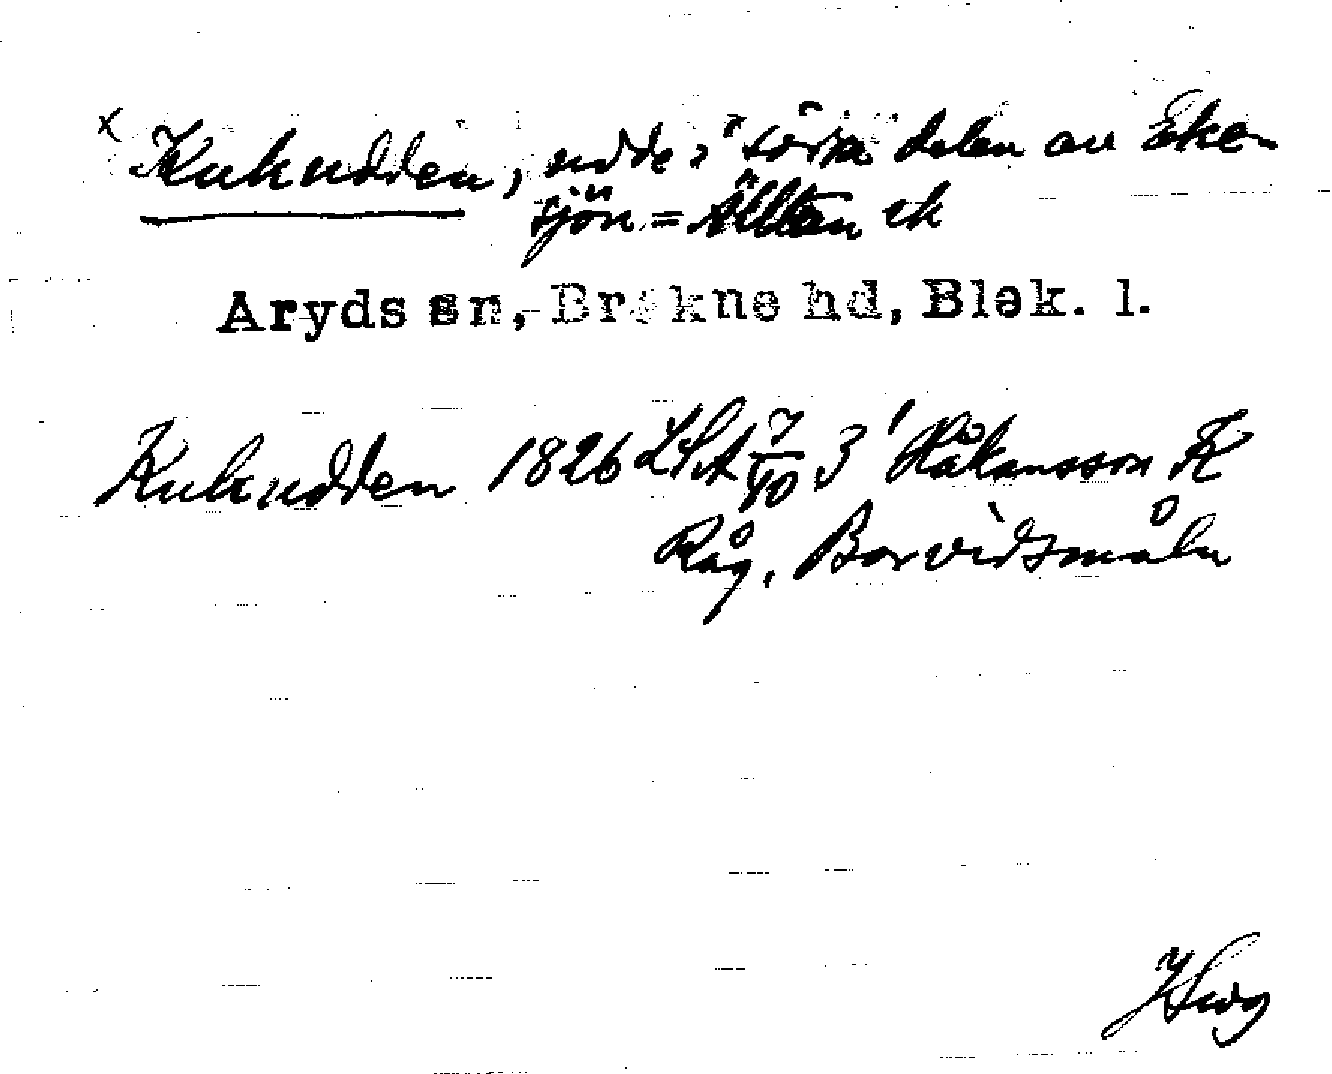 x Kuhudden, udde i södra delen av Eke-
sjön = Ällten ek
Aryds sn, Bräkne hd, Blek. l.
Kuhudden 1826 LSA 7/40 3 Håkansson K
Råg. Borvidsmåla